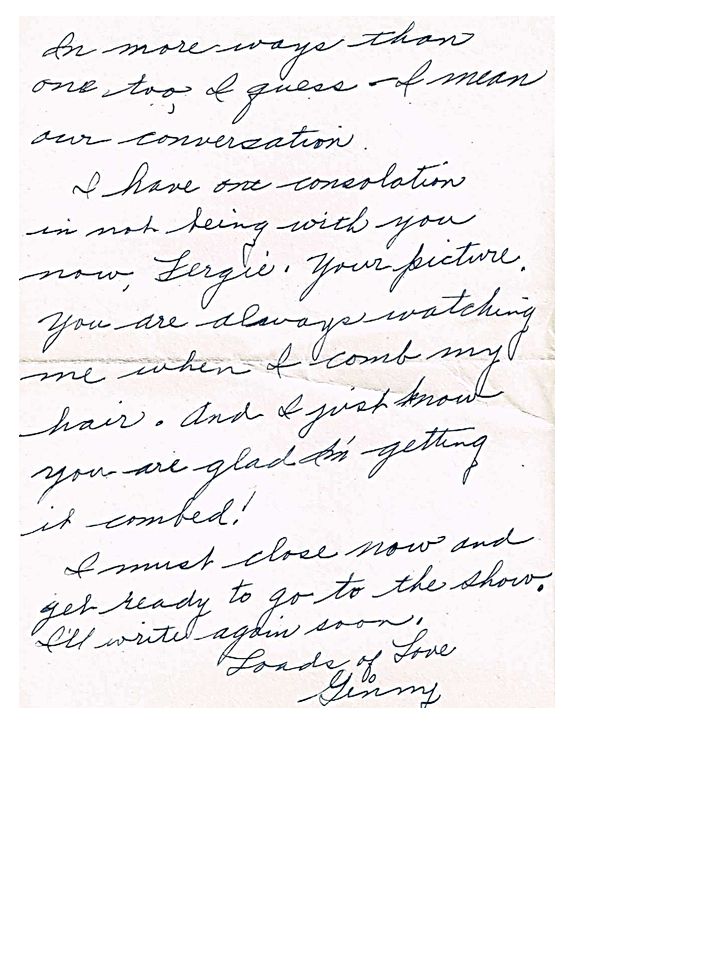 In more ways than
one, too, I guess - I mean
our conversation.
I have one consolation
in not being with you
now, Fergie. Your picture.
You are always watching
me when I comb my
hair. And I just know
you are glad I'm getting
it combed!
I must close now and
get ready to go to the show.
I'll write again soon.
Loads of Love
Ginny